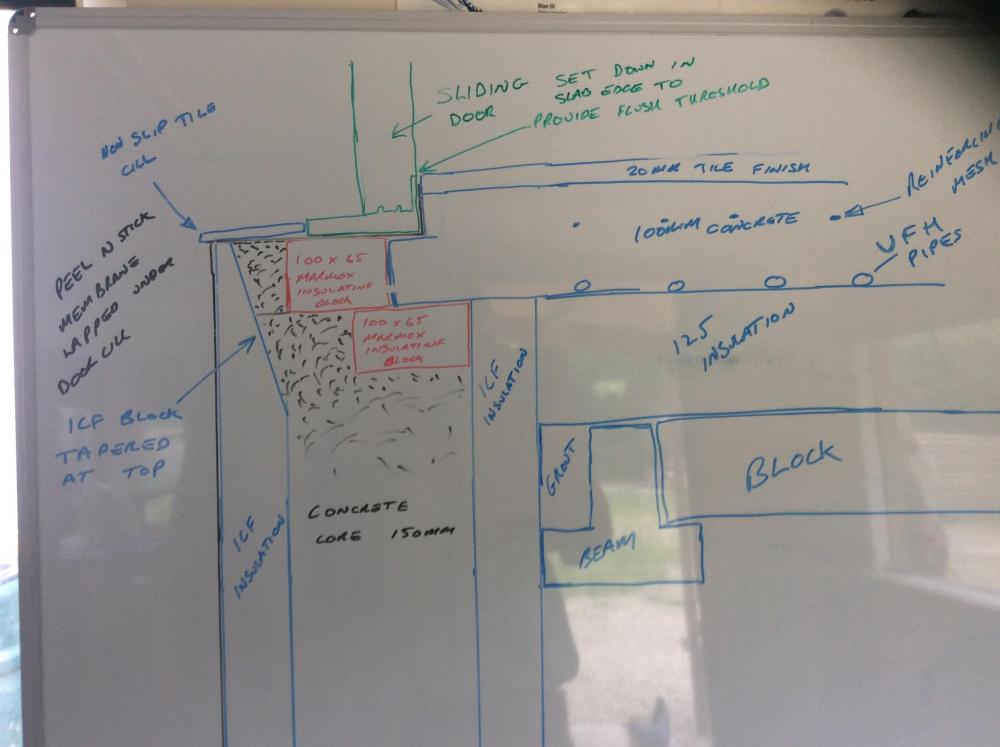 SLIDING
DOOR
SET DOWN IN
SLAB EDGE TO
PROVIDE FLUSH THRESHOLD
NON SLIP TILE
CILL
20MM TILE FINISH
REINFORCING
MESH
100MM CONCRETE
UFH
PIPES
PEEL N STICK
MEMBRANE
LAPPED UNDER
DOOR CILL
100 x 65
MARMOX
INSULATING
BLOCK
100 x 65
MARMOX
INSULATING
BLOCK
125
INSULATION
ICF BLOCK
TAPERED
AT TOP
ICF
INSULATION
GROUT
BLOCK
CONCRETE
CORE 150MM
ICF
INSULATION
BEAM